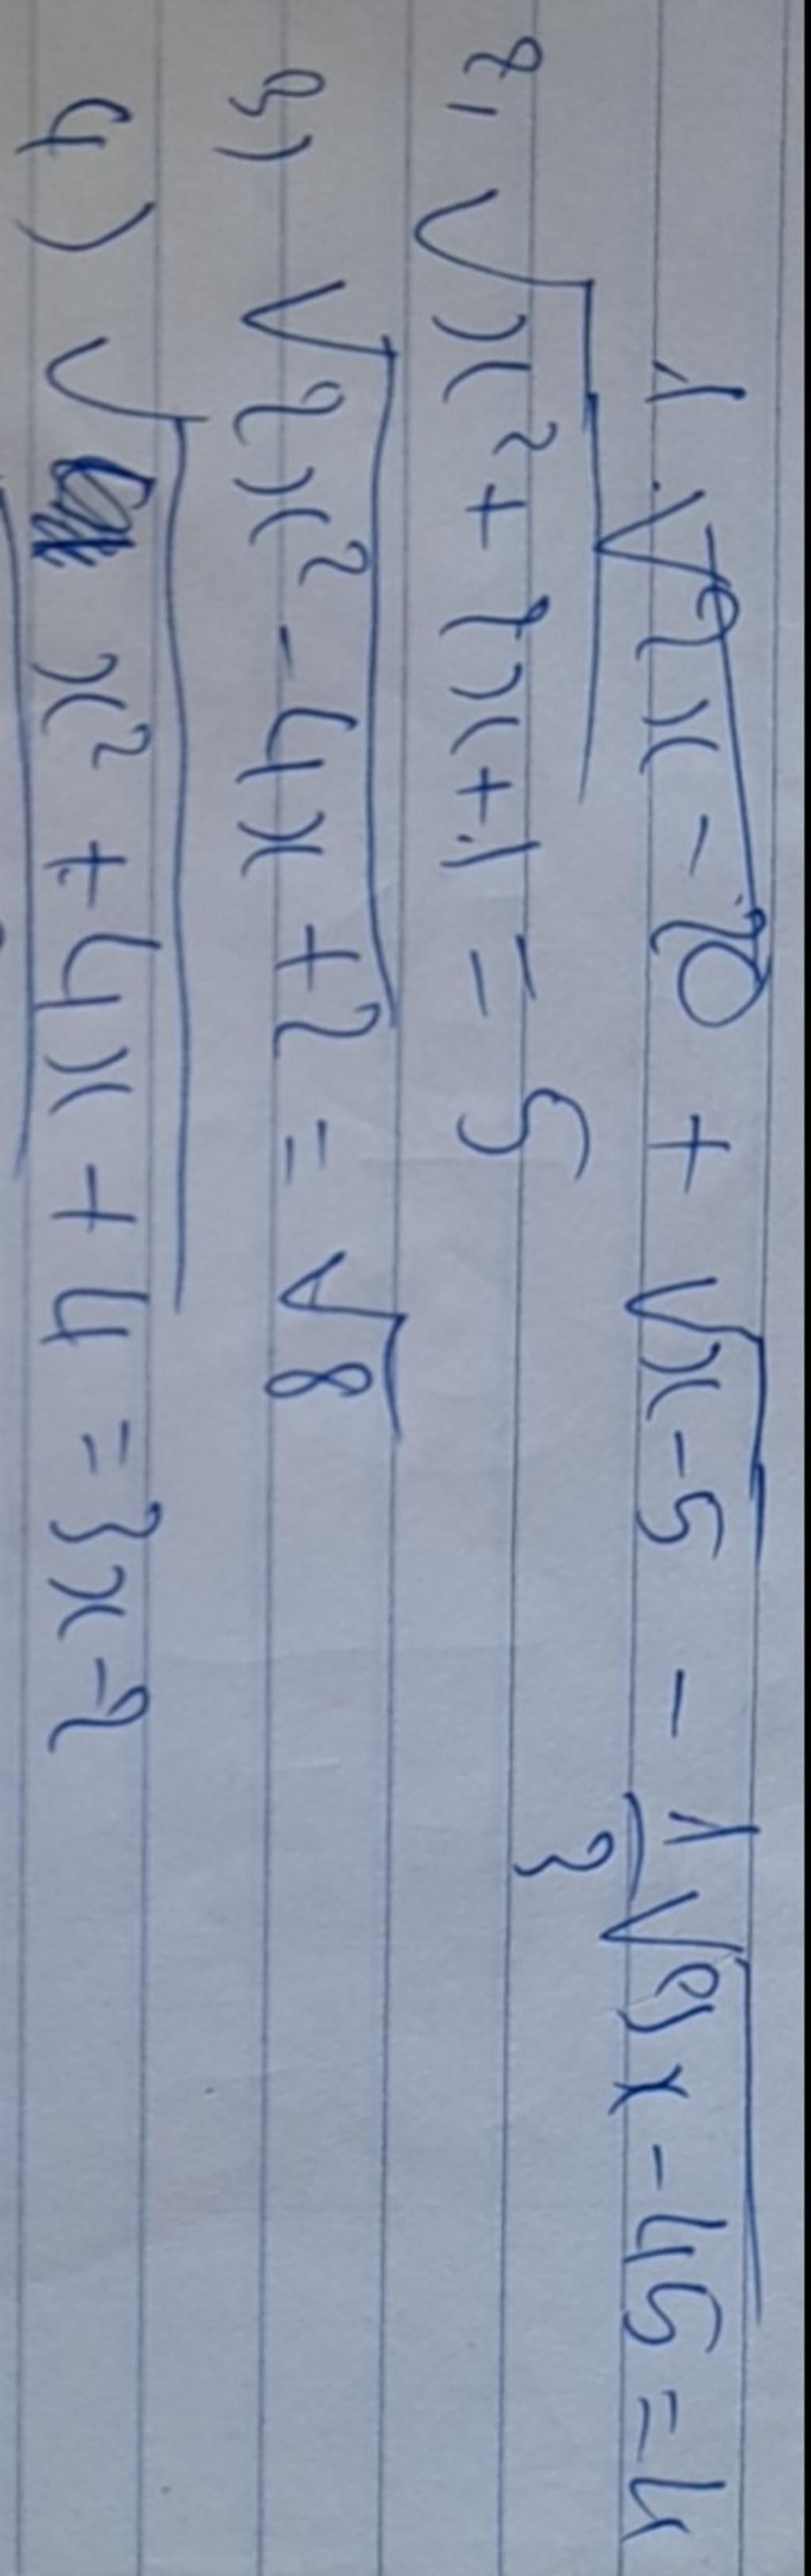 1. √2x - 20 + √x-5 - 1/3 √9x - 45 = 4
2, √x² + 2x + 1 = 5
3) √2x² - 4x + 2 = √8
4) √x² + 4x + 4 = 3x - 2